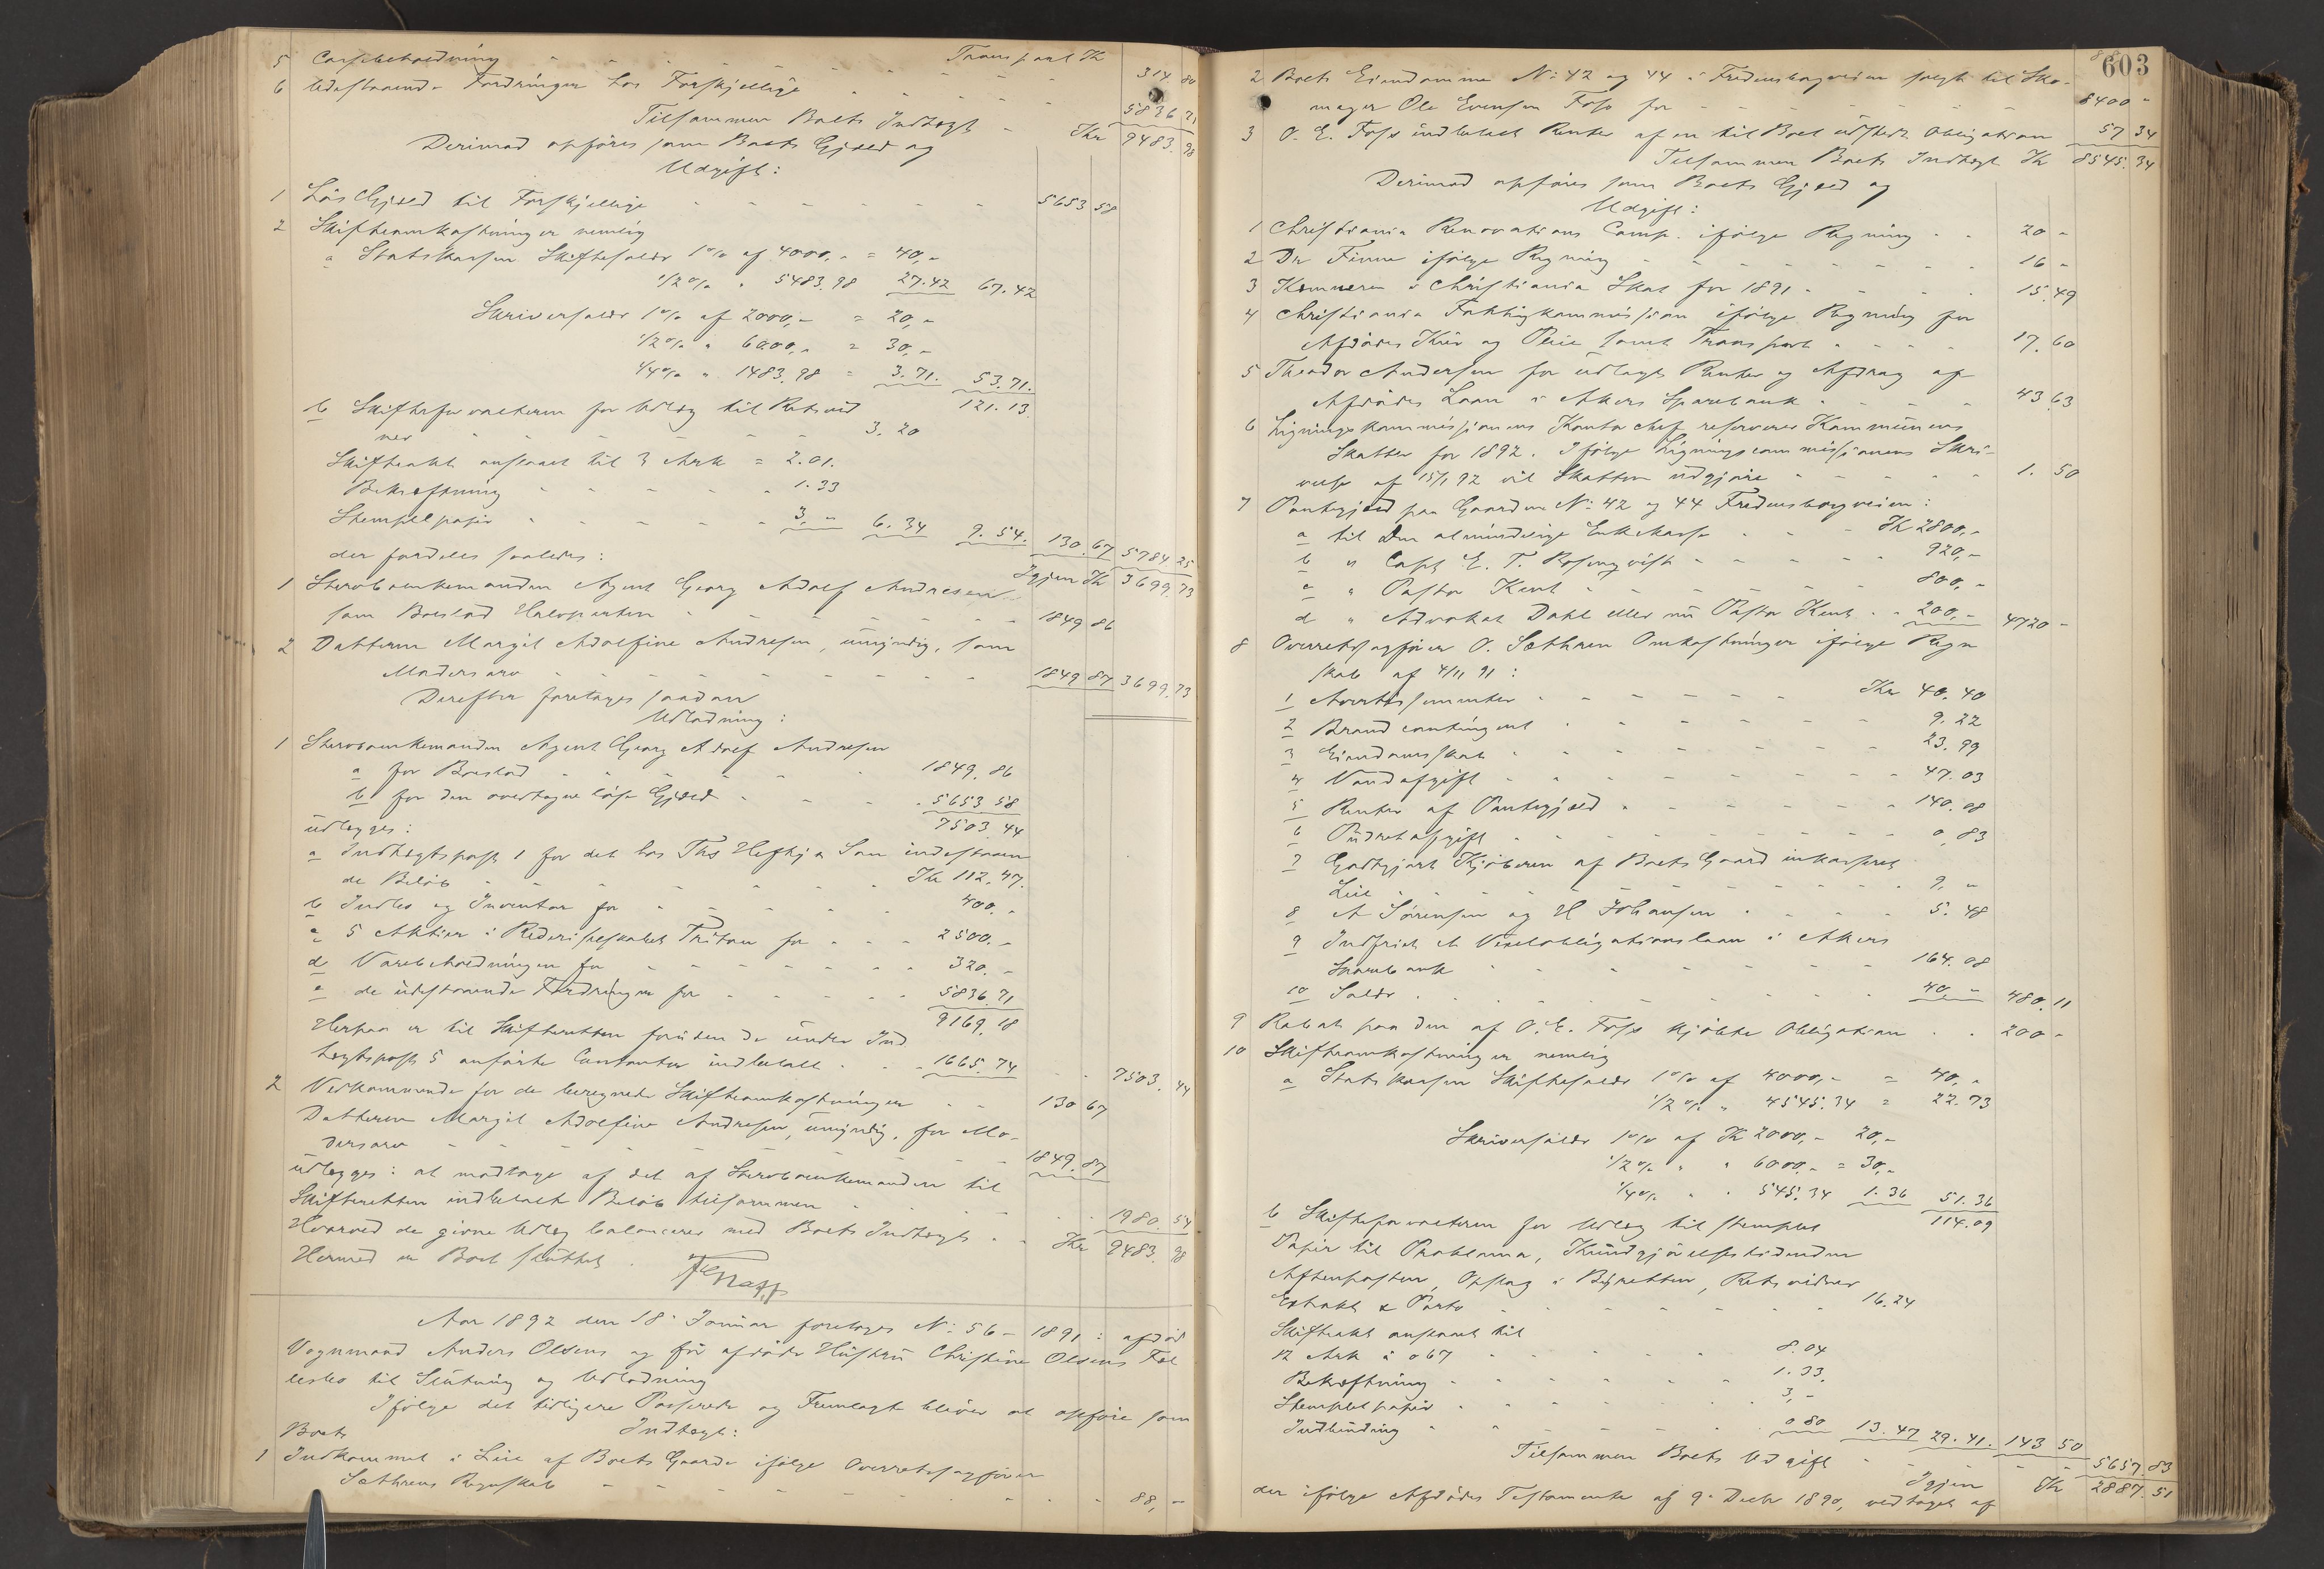 Transport Kr
5 Cassebeholdning - - - - - 314. 80
6 Udestaaende Fordringer hos Forskjellige - - - 5836 71
Tilsammen Boets Indtægt - Kr 9483. 98
Derimod opføres som Boets Gjæld og
Udgift:
1 Løs Gjæld til Forskjellige - - - - - 5653 58
2 Skifteomkostninger nemlig
a Statskassen Skiftesalær 1% af 4000,- = 40,-
1/2% " 5483.98 27.42 67.42
Skriversalær 1% af 2000,- = 20,-
1/2% " 6000,- = 30,-
1/4% " 1483.98 = 3.71. 53.71.
121.13.
b Skifteforvalteren for Udlæg til Retsvid
ner - - - - - 3.20
Skifteakt anslaaet til 3 Ark = 2.01.
Bekræftning - - - - - 1.33
Stemplet papir - - - - 3,- 6.34 9.54. 130.67 5784 25
Igjen Kr 3699.73
der fordeles saaledes:
1 Sterboenkemanden Agent Georg Adolf Andresen
som Boeslod Halvparten - - - - 1849 86
2 Datteren Margit Adolfine Andresen, umyndig, som
Modersarv - - - - - 1849 87 3699.73
Derefter foretages saadan
Udlodning:
1 Sterboenkemanden Agent Georg Adolf Andresen
a for Boeslod - - - - 1849.86
b for den overtagne løse Gjæld - - - 5653 58
7503.44
udlægges:
a Indtægtspost 1 for det hos Ths Heftye & Søn indestaaen
de Beløb - - - - - Kr 112.47.
b Indbo og Inventar for - - - - 400,-
c 5 Aktier i Rederiselskabet Triton for - - - 2500,-
d Varebeholdningen for - - - - 320,-
e de udestaaende Fordringer for - - - - 5836.71
9169.18
Herpaa er til Skifteretten foruden de under Ind
tægtspost 5 anførte Contanter indbetalt - - - 1665.74 - - 7503.44
2 Vedkommende for de beregnede Skifteomkostninger - - 130 67
Datteren Margit Adolfine Andresen, umyndig, for Mo-
dersarv - - - - - 1849.87
udlægges: at modtage af det af Sterboenkemanden til
Skifteretten indbetalte Beløb tilsammen - - - - 1980.54
Hvorved de givne Udlæg balancerer med Boets Indtægt - - Kr 9483.98
Hermed er Boet sluttet.
Aar 1892 den 18' Januar foretages No: 56 - 1891: afdød
Vognmand Anders Olsens og før afdøde Hustru Christine Olsens Fæl
lesbo til Slutning og Udlodning
Ifølge det tidligere Passerede og Fremlagte bliver at opføre som
Boets Indtægt:
1 Indkommet i Leie af Boets Gaarde ifølge Overretssagfører
Sæthrens Regnskab - - - - - 88,-
603
2 Boets Eiendomme No: 42 og 44 i Fredensborgveien solgt til Sko-
mager Ole Evensen Foss for - - - - 8400 -
3 O. E. Foss indbetalt Renter af en til Boet udstedt Obligation 57 34
Tilsammen Boets Indtægt Kr 8545.34
Derimod opføres som Boets Gjæld og
Udgift:
1 Christiania Renovations Comp. ifølge Regning - - 20 -
2 Dr Finne ifølge Regning - - - - 16 -
3 Kæmneren i Christiania Skat for 1891 - - - 15.49
4 Christiania Fattigkommission ifølge Regning for
Afdødes Kur og Pleie samt Transport - - - 17.60
5 Theodor Andersen for udlagte Renter og Afdrag af
Afdødes Laan i Akers Sparebank - - - 43.63
6 Ligningskommissionens Kontorchef reserveres Kommunens
Skatter for 1892. Ifølge Ligningscommissionens Skri-
velse af 15/1 92 vil Skatten udgjøre - - - - 1.50
7 Pantegjæld paa Gaardene No: 42 og 44 Fredensborgveien:
a til Den almindelige Enkekasse - - - Kr 2800,-
b " Capt E. T. Rosenqvist - - - - 920,-
c " Pastor Kent - - - - - 800,-
d " Advokat Dahl eller nu Pastor Kent - - 200,- 4720 -
8 Overretssagfører O. Sæthren Omkostninger ifølge Regn
skab af 4/11 91:
1 Avertissementer - - - - - Kr 40.40
2 Brandcontingent - - - - - 9.22
3 Eiendomsskat - - - - - 23.99
4 Vandafgift - - - - - 47.03
5 Renter af Pantegjæld - - - - - 140.08
6 Pudretafgift - - - - - 0.83
7 Godtgjort Kjøberen af Boets Gaard inkasseret
Leie - - - - - 9,-
8 A Sørensen og H Johansen - - - - 5.48
9 Indfriet et Vexelobligationslaan i Akers
Sparebank - - - - - 164.08
10 Salær - - - - - 40,- 480.11
9 Rabat paa den af O. E. Foss kjøbte Obligation - - 200 -
10 Skifteomkostninger nemlig
a Statskassen Skiftesalær 1% af 4000,- = 40,-
1/2% " 4545.34 = 22.73
Skriversalær 1% af Kr 2000,- 20,-
1/2% " " 6000,- = 30,-
1/4% " " 545.34 1.36 51.36
114.09
b Skifteforvalteren for Udlæg til stemplet
Papir til Proklama, Kundgjørelsestidenden
Aftenposten, Opslag i Byretten, Retsvidner
Extrakt & Porto - - - - - 16.24
Skifteakt anslaaet til
12 Ark à 067 - - - - 8.04
Bekræftning - - - - - 1.33.
Stemplet papir - - - - - 3,-
Indbinding - - - - - 0 80 13.47 29.71. 143 50
Tilsammen Boets Udgift - - - - 5657.83
Igjen Kr 2887.51
der ifølge Afdødes Testamente af 9' Decbr 1890, vedtaget af